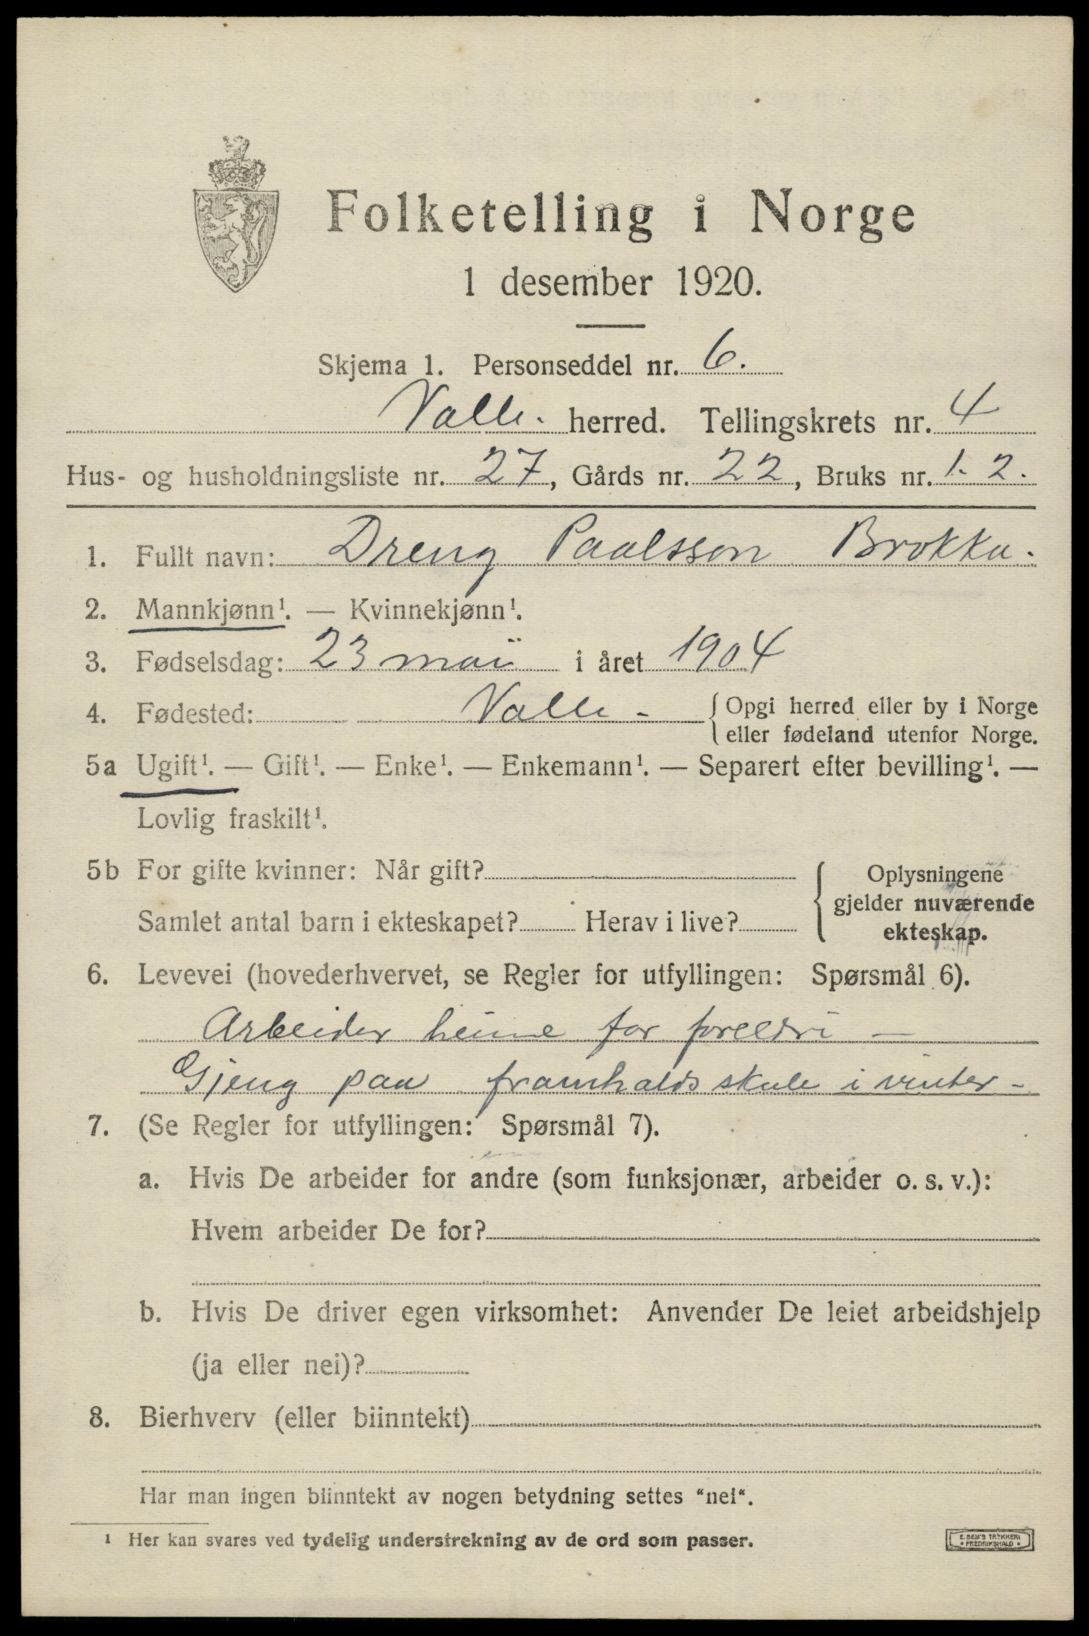 Folketelling i Norge
1 desember 1920.
Skjema 1. Personseddel nr. 6.
Valle. herred. Tellingskrets nr. 4
Hus- og husholdningsliste nr. 27, Gårds nr. 22, Bruks nr. 1. 2.
1. Fullt navn: Dreng Paalsson Brokka.
2. Mannkjønn¹. — Kvinnekjønn¹.
3. Fødselsdag: 23 mai i året 1904
4. Fødested: Valle - { Opgi herred eller by i Norge
eller fødeland utenfor Norge.
5a Ugift¹. — Gift¹. — Enke¹. — Enkemann¹. — Separert efter bevilling¹. —
Lovlig fraskilt¹.
5b For gifte kvinner: Når gift?
Samlet antal barn i ekteskapet? Herav i live?
{ Oplysningene
gjelder nuværende
ekteskap.
6. Levevei (hovederhvervet, se Regler for utfyllingen: Spørsmål 6).
Arbeider heime for foreldri —
Gjeng paa framhaldsskule i vinter -
7. (Se Regler for utfyllingen: Spørsmål 7).
a. Hvis De arbeider for andre (som funksjonær, arbeider o. s. v.):
Hvem arbeider De for?
b. Hvis De driver egen virksomhet: Anvender De leiet arbeidshjelp
(ja eller nei)?
8. Bierhverv (eller biinntekt)
Har man ingen biinntekt av nogen betydning settes "nei".
¹ Her kan svares ved tydelig understrekning av de ord som passer.
E. SEM'S TRYKKERI
• FREDRIKSHALD •